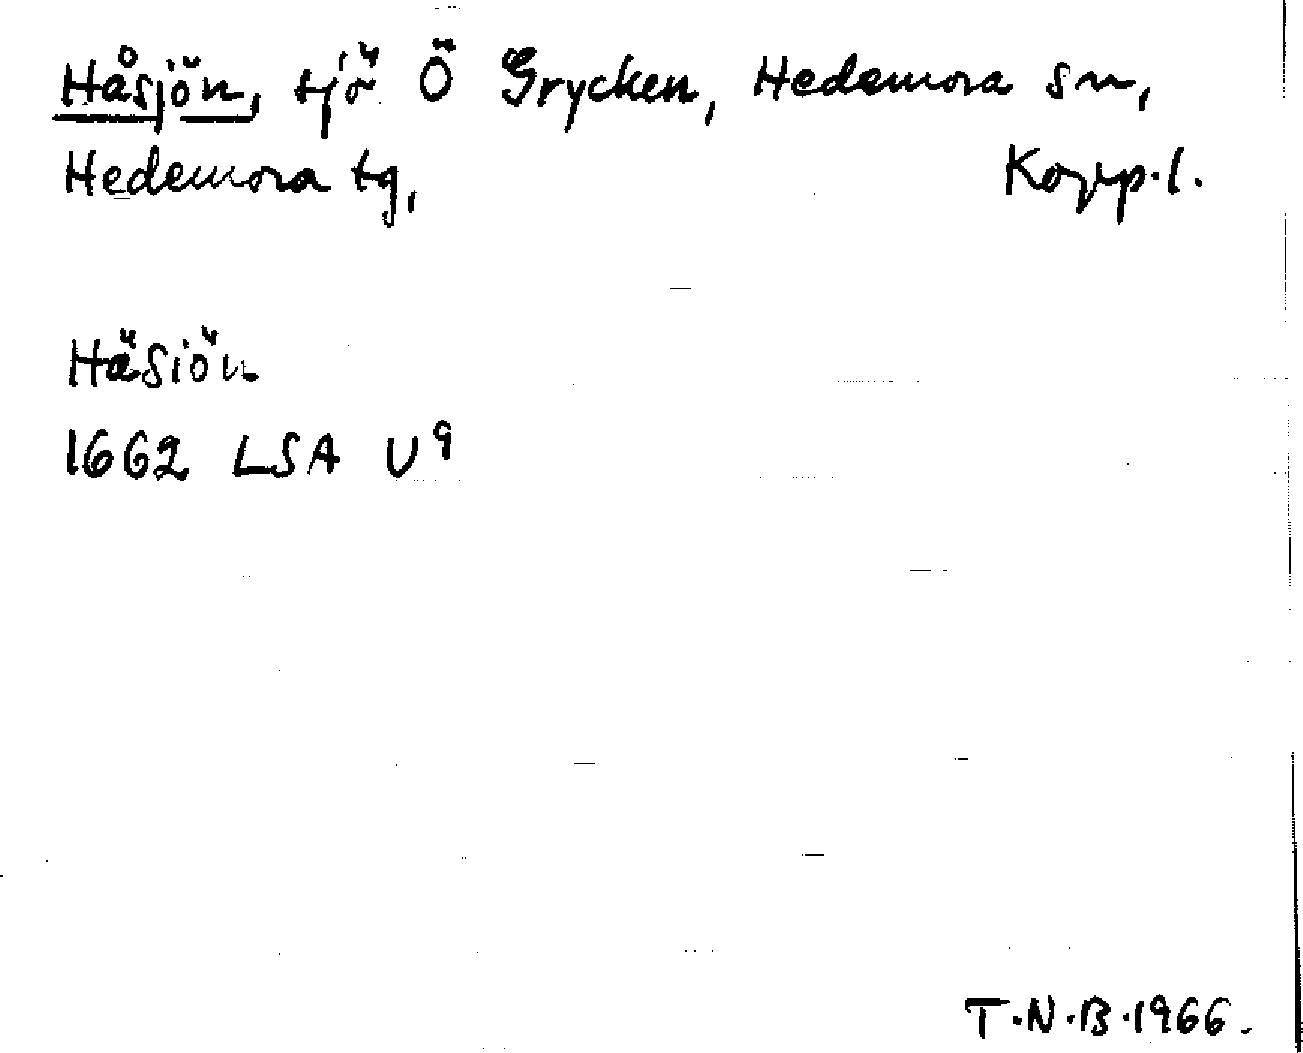 Håsjön, sjö Ö Grycken, Hedemora sn,
Hedemora tg, Kopp.l.
Häsiön
1662 LSA U9
T.N.B.1966.